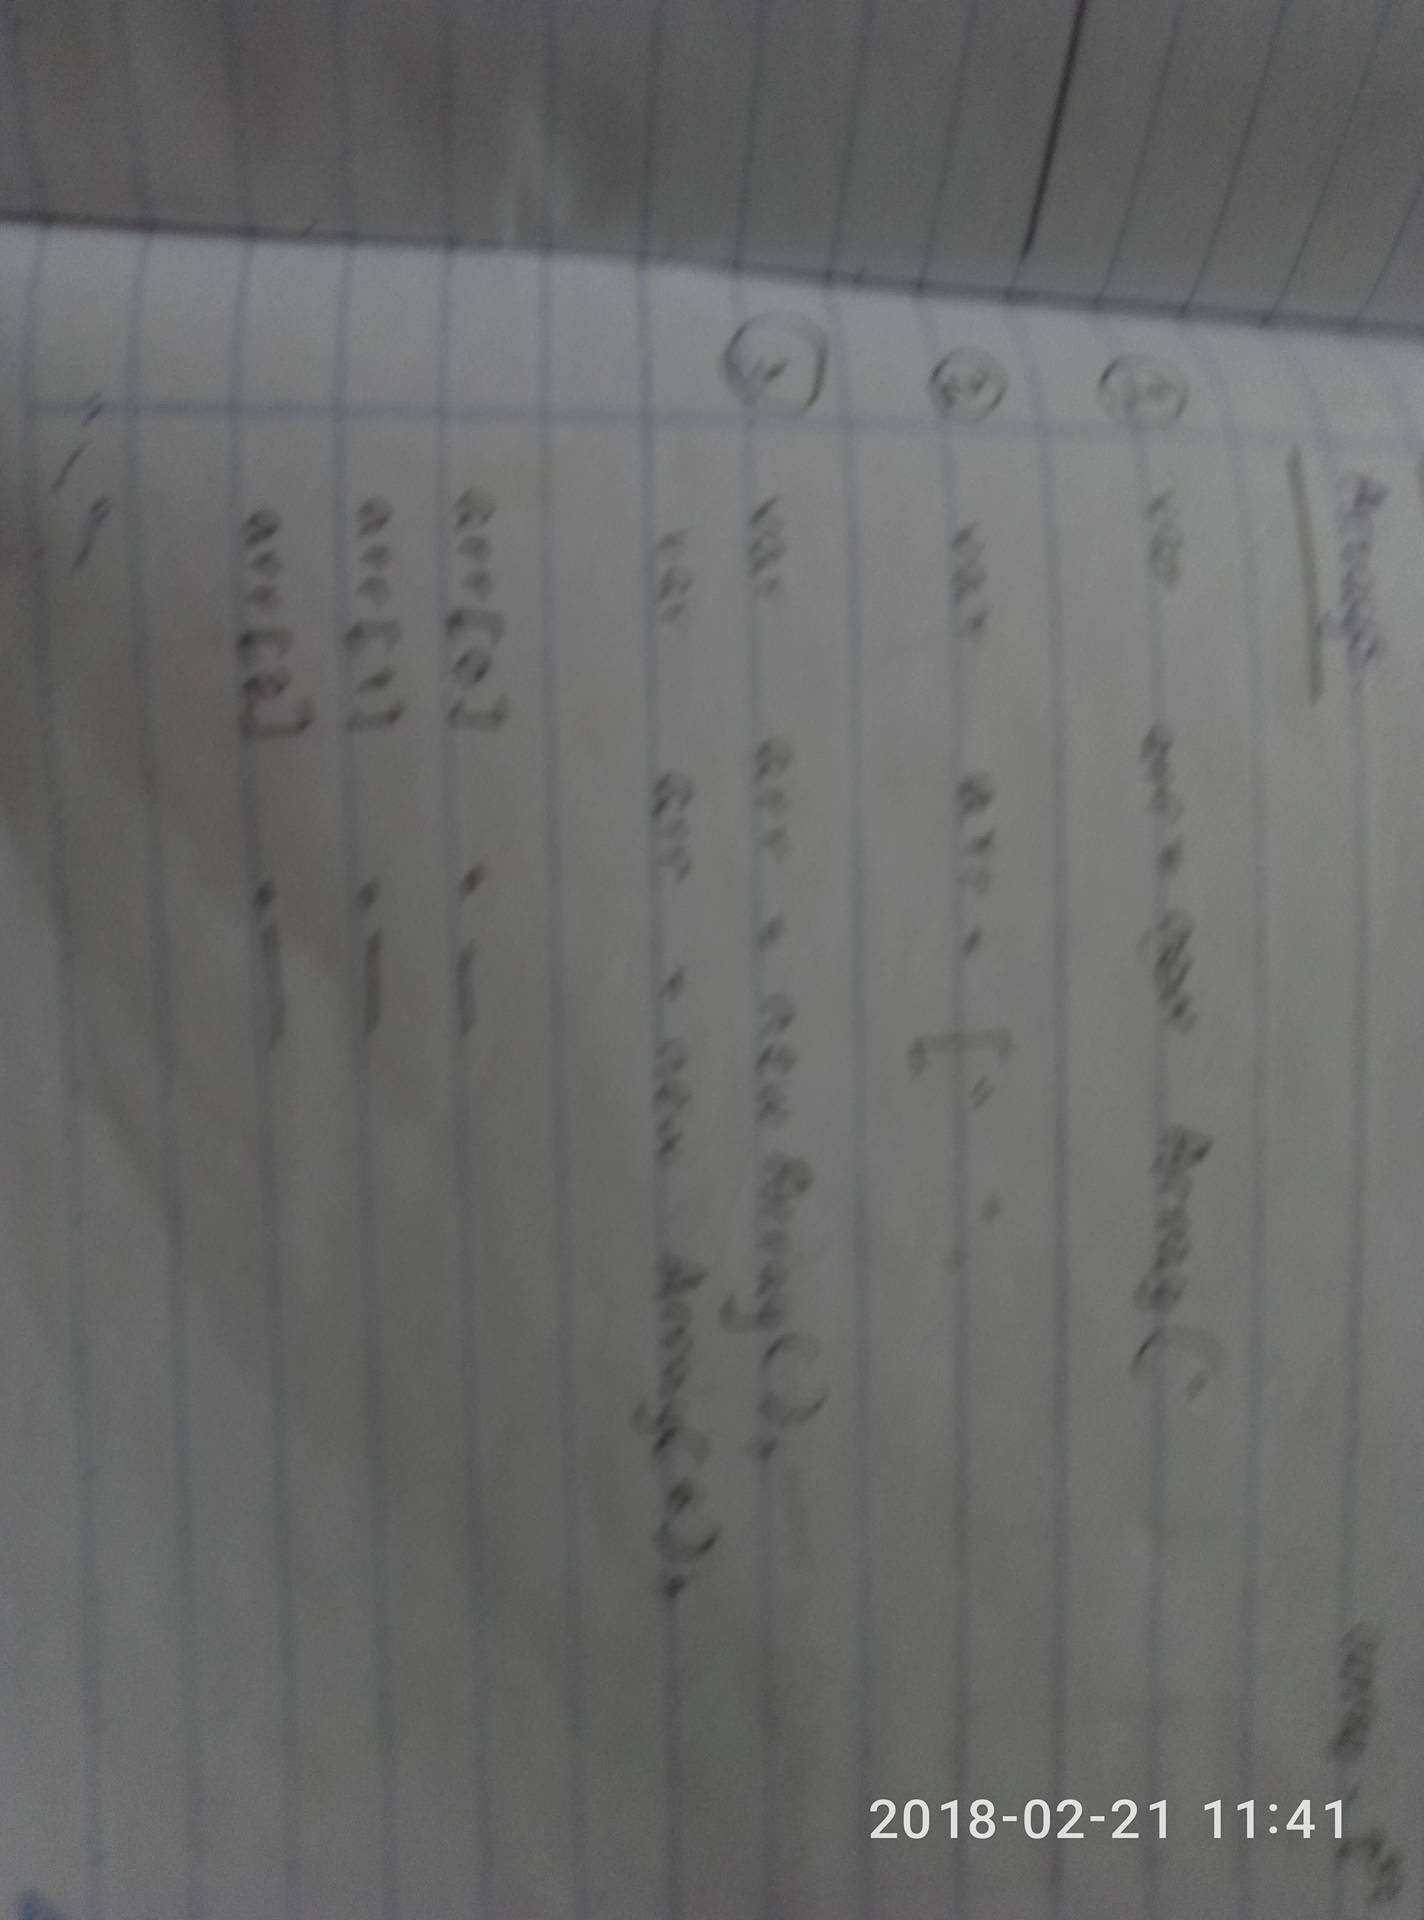 Arrays
① var arr = new Array("
② var arr = ["
③ var arr = new Array();
var arr = new Array( );
arr[0] = —
arr[1] = —
arr[2] = —
2018-02-21 11:41